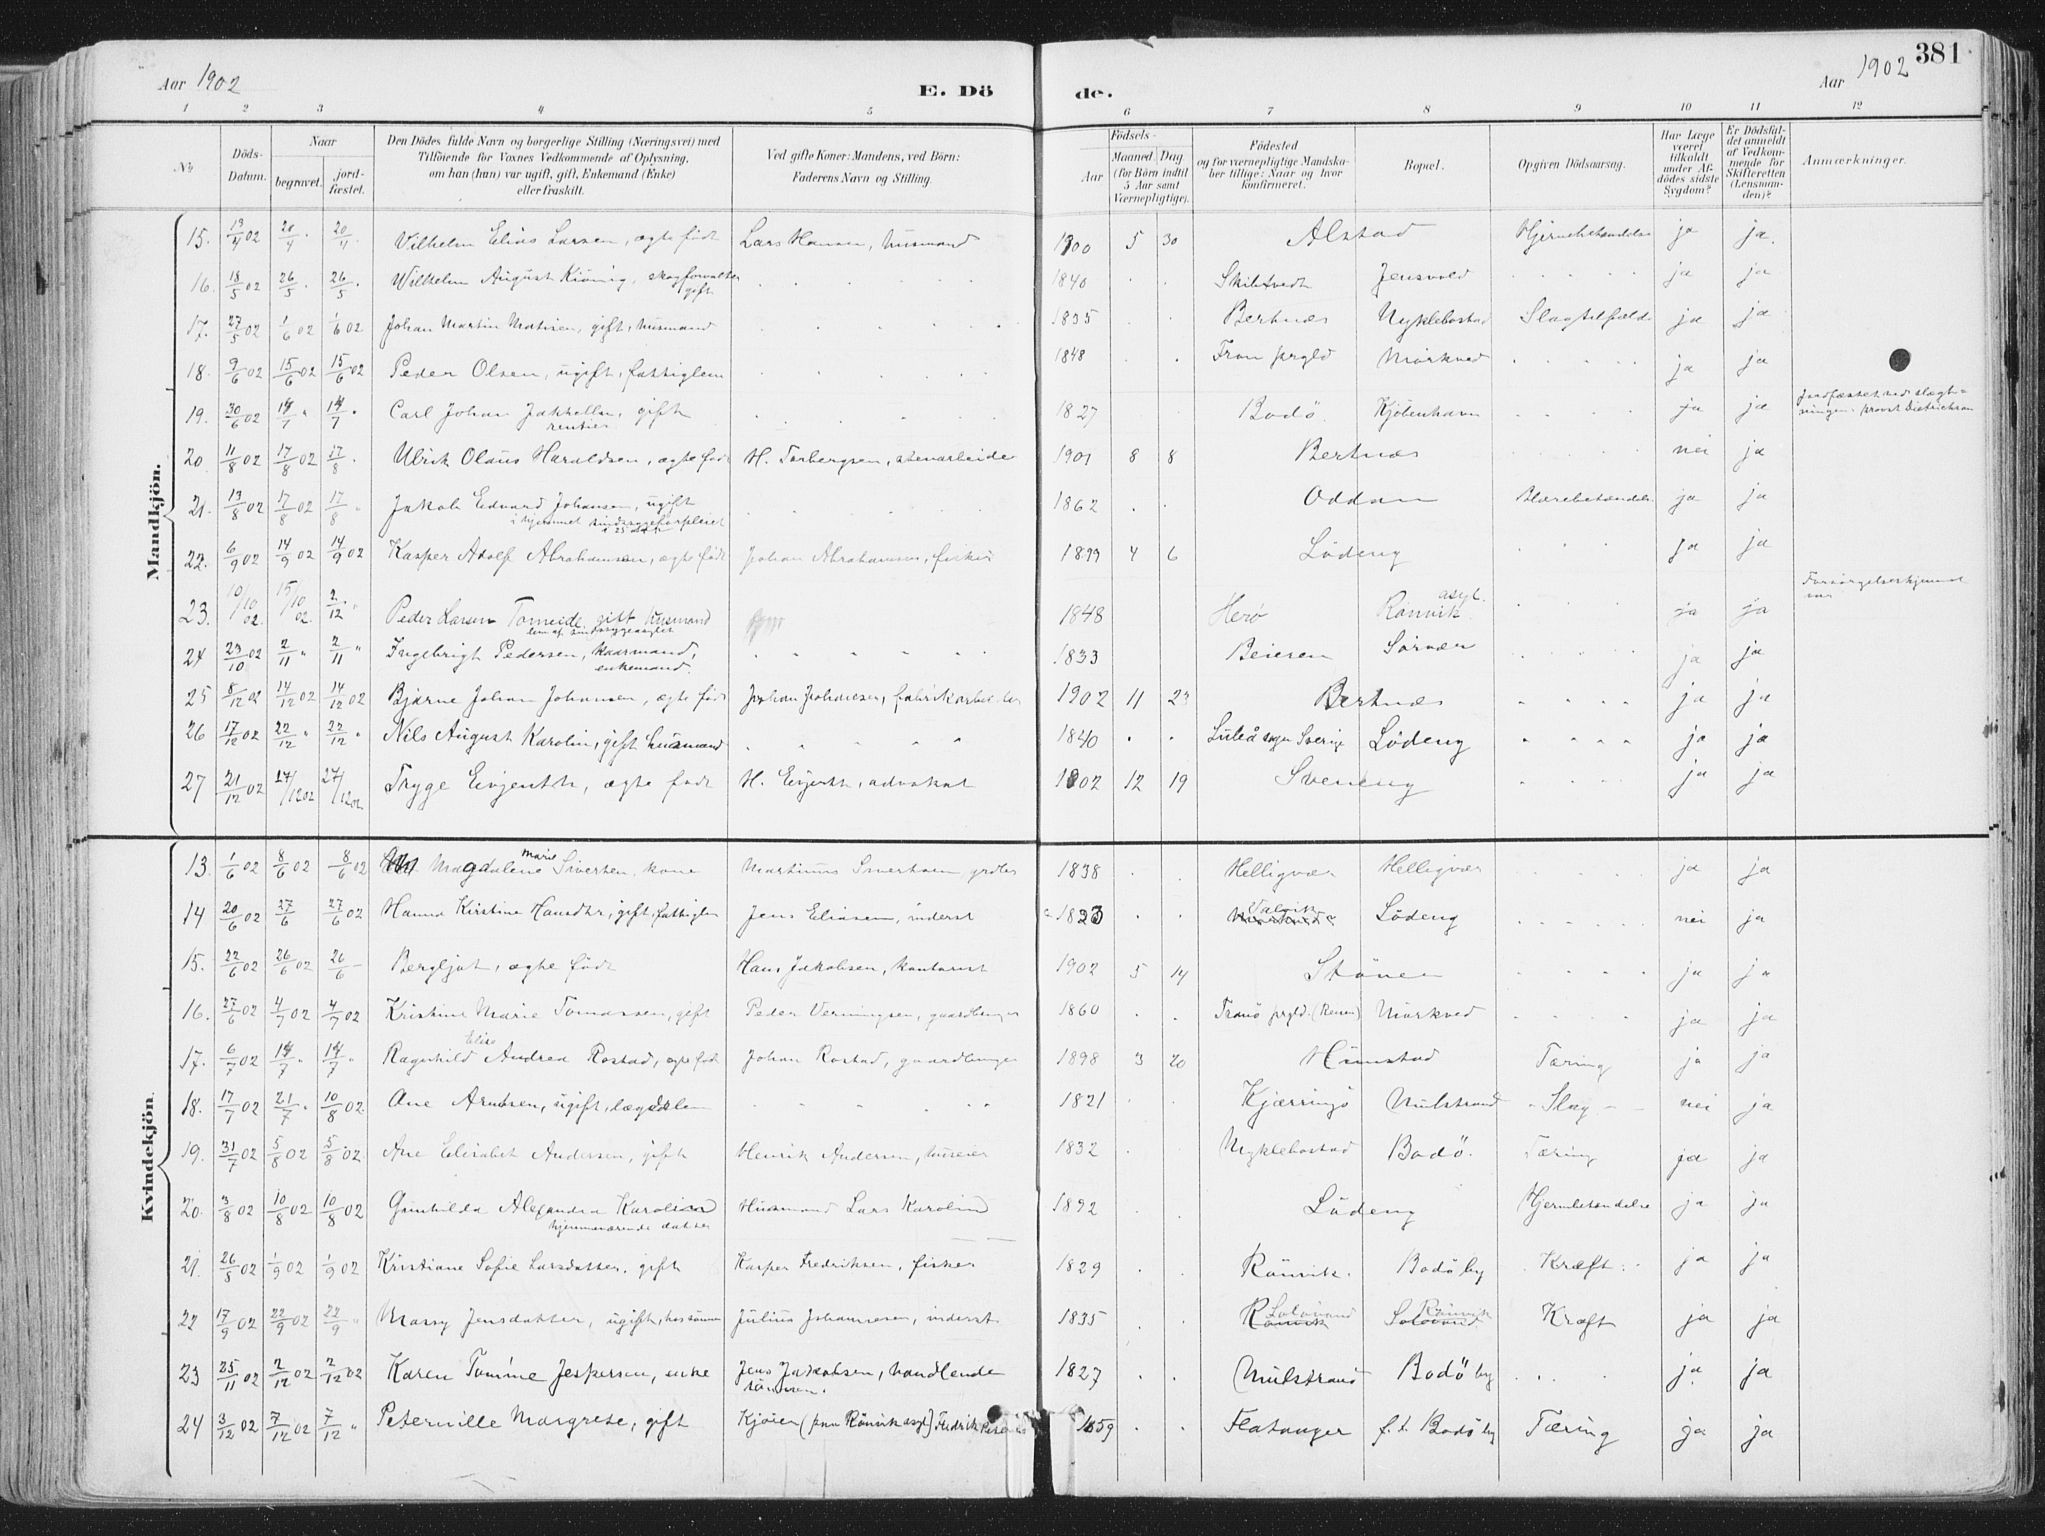 Aar 1902
E. Dö
de.
Aar 1902
381
1 2 3 4 5 6 7 8 9 10 11 12
No
Döds-Datum.
Naar
begravet.
jord-fæstet.
Den Dödes fulde Navn og borgerlige Stilling (Næringsvei) med Tilföiende for Voxnes Vedkommende af Oplysning, om han (hun) var ugift, gift, Enkemand (Enke) eller fraskilt.
Ved gifte Koner: Mandens, ved Börn: Faderens Navn og Stilling.
Födsels-
Aar
Maaned Dag
(for Börn indtil 5 Aar samt Værnepligtige).
Födested og for værnepligtige Mandska-ber tillige: Naar og hvor konfirmeret.
Bopæl.
Opgiven Dödsaarsag.
Har Læge været tilkaldt under Af-dödes sidste Sygdom?
Er Dödsfal-det anmeldt af Vedkom-mende for Skifteretten (Lensman-den)?
Anmærkninger.
Mandkjön.
15. 13/4 02 20/4 20/4 Vilhelm Elias Larsen, ægte født Lars Hansen, husmand 1900 5 30 Alstad Hjernebetændelse ja ja.
16. 18/5 02 26/5 26/5 Wilhelm August Kiönig, skogforvalter gift 1840 Skibtvedt Jensvold ja ja
17. 27/5 02 1/6 02 1/6 02 Johan Martin Matisen, gift, husmand 1835 Bertnæs Nyklebostad Slagtilfælde ja ja
18. 9/6 02 15/6 02 15/6 02 Peder Olsen, ugift, fattiglem 1848 Fron prgld Mörkved ja ja
19. 30/6 02 14/7 14/7 Carl Johan Jakhelln, gift rentier 1827 Bodö Kjöbenhavn ja ja Jordfæstet ved slægt-ningen, provst Dietrichson
20. 11/8 02 17/8 02 17/8 Ulrik Olaus Haraldsen, ægte født H. Torbergsen, stenarbeider 1901 8 8 Bertnæs nei ja
21. 13/8 02 17/8 02 17/8 Jakob Edvard Johansen, ugift i hjemmet sindssygeforpleiet 1862 Oddan Blærebetændelse ja ja
22. 6/9 02 14/9 02 14/9 02 Kasper Adolf Abrahamsen, ægte født Johan Abrahamsen, fisker 1899 4 6 Lödeng ja ja
23. 10/10 02. 15/10 02. 2/12 Peder Larsen Tomeide gift husmand lem af sindssygeasylet 1848 Herö Rönvik asyl. ja ja
24 23/10 02 2/11 2/11 Ingebrigt Pedersen, kaarmand, enkemand. 1833 Beieren Sörvær ja ja
25 8/12 02 14/12 02 14/12 02 Bjarne Johan Johansen, ægte født Johan Johansen, fabrikarbeider 1902 11 23 Bertnæs ja ja
26 17/12 02 22/12 22/12 Nils August Karolin, gift husmand 1840 Luleå sogn Sverige Lödeng ja ja
27 21/12 02 27/12 02 27/12 02 Tryge Evjenth, ægte født H. Evjenth, advokat 1902 12 19 Sveneng ja ja
Kvindekjön.
13. 1/6 02 8/6 02 8/6 02 Magdalene Marie Sivertsen, kone Martinus Sivertsen 1838 Helligvær Helligvær ja ja
14 20/6 02 27/6 27/6 02 Hanna Kirstine Hansdtr, gift, fattiglem Jens Eliasen, inderst 1823 Valvik Lödeng nei ja
15. 22/6 02 26/6 02 26/6 Bergljot, ægte født Hans Jakobsen, kontorist 1902 5 14 Stönen ja ja
16. 27/6 02 4/7 02 4/7 02 Kristine Marie Tomassen, gift Peder Verningsen, gaardbruger 1860 Tranö prgld. Mörkved ja ja
17. 6/7 02 14/7 14/7 Ragnhild Elise Andrea Rostad, ægte født Johan Rostad, gaardbruger 1898 3 20 Hunstad Tæring ja ja
18. 17/7 02 21/7 10/8 02. Ane Arntsen, ugift, lægdslem 1821 Kjærringö Mulstrand Slag nei ja
19. 31/7 02 5/8 02 5/8 02. Ane Elisabet Andersen, gift Henrik Andersen, huseier 1832 Nyklebostad Bodö. Tæring ja ja
20. 3/8 02 10/8 02 10/8 02 Gunhilda Alexandra Karolin hjemmeværende datter Husmand Lars Karolin 1892 Lödeng Hjernebetændelse ja ja
21. 26/8 02 1/9 02 1/9 02 Kristiane Sofie Larsdatter, gift Kasper Fredriksen, fisker 1829 Rönvik. Bodö by Kræft. ja ja
22 17/9 02 22/9 02 22/9 Massy Jensdatter, ugift, hos sönnen Julius Johannesen, inderst 1835 Rönvik Soløivand Soløivand Rönvik Kræft ja ja
23 25/11 02 2/12 02 2/12 02 Karen Tomine Jespersen, enke Jens Jakobsen, handlende sönnen. 1827 Mulstrand Bodö by ja ja
24 3/12 02 7/12 02 7/12 Peternille Margrete, gift Kjöien Rönvik asyl Fredrik 1859 Flatanger f. t. Bodö by Tæring ja ja